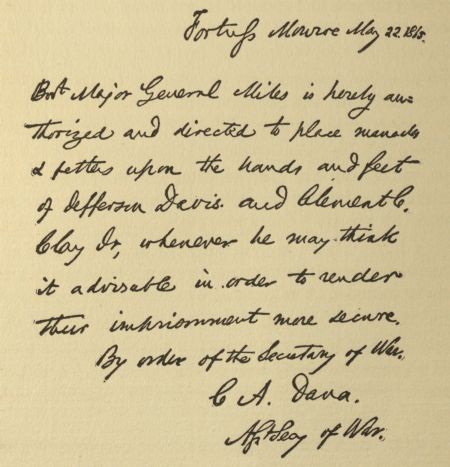 Fortress Monroe May 22. 1865.
Bvt Major General Miles is hereby au=
thorized and directed to place manacles
& fetters upon the hands and feet
of Jefferson Davis and Clement C.
Clay Jr, whenever he may think
it advisable in order to render
their imprisonment more secure.
By order of the Secretary of War.
C A. Dana.
Asst Secy of War.